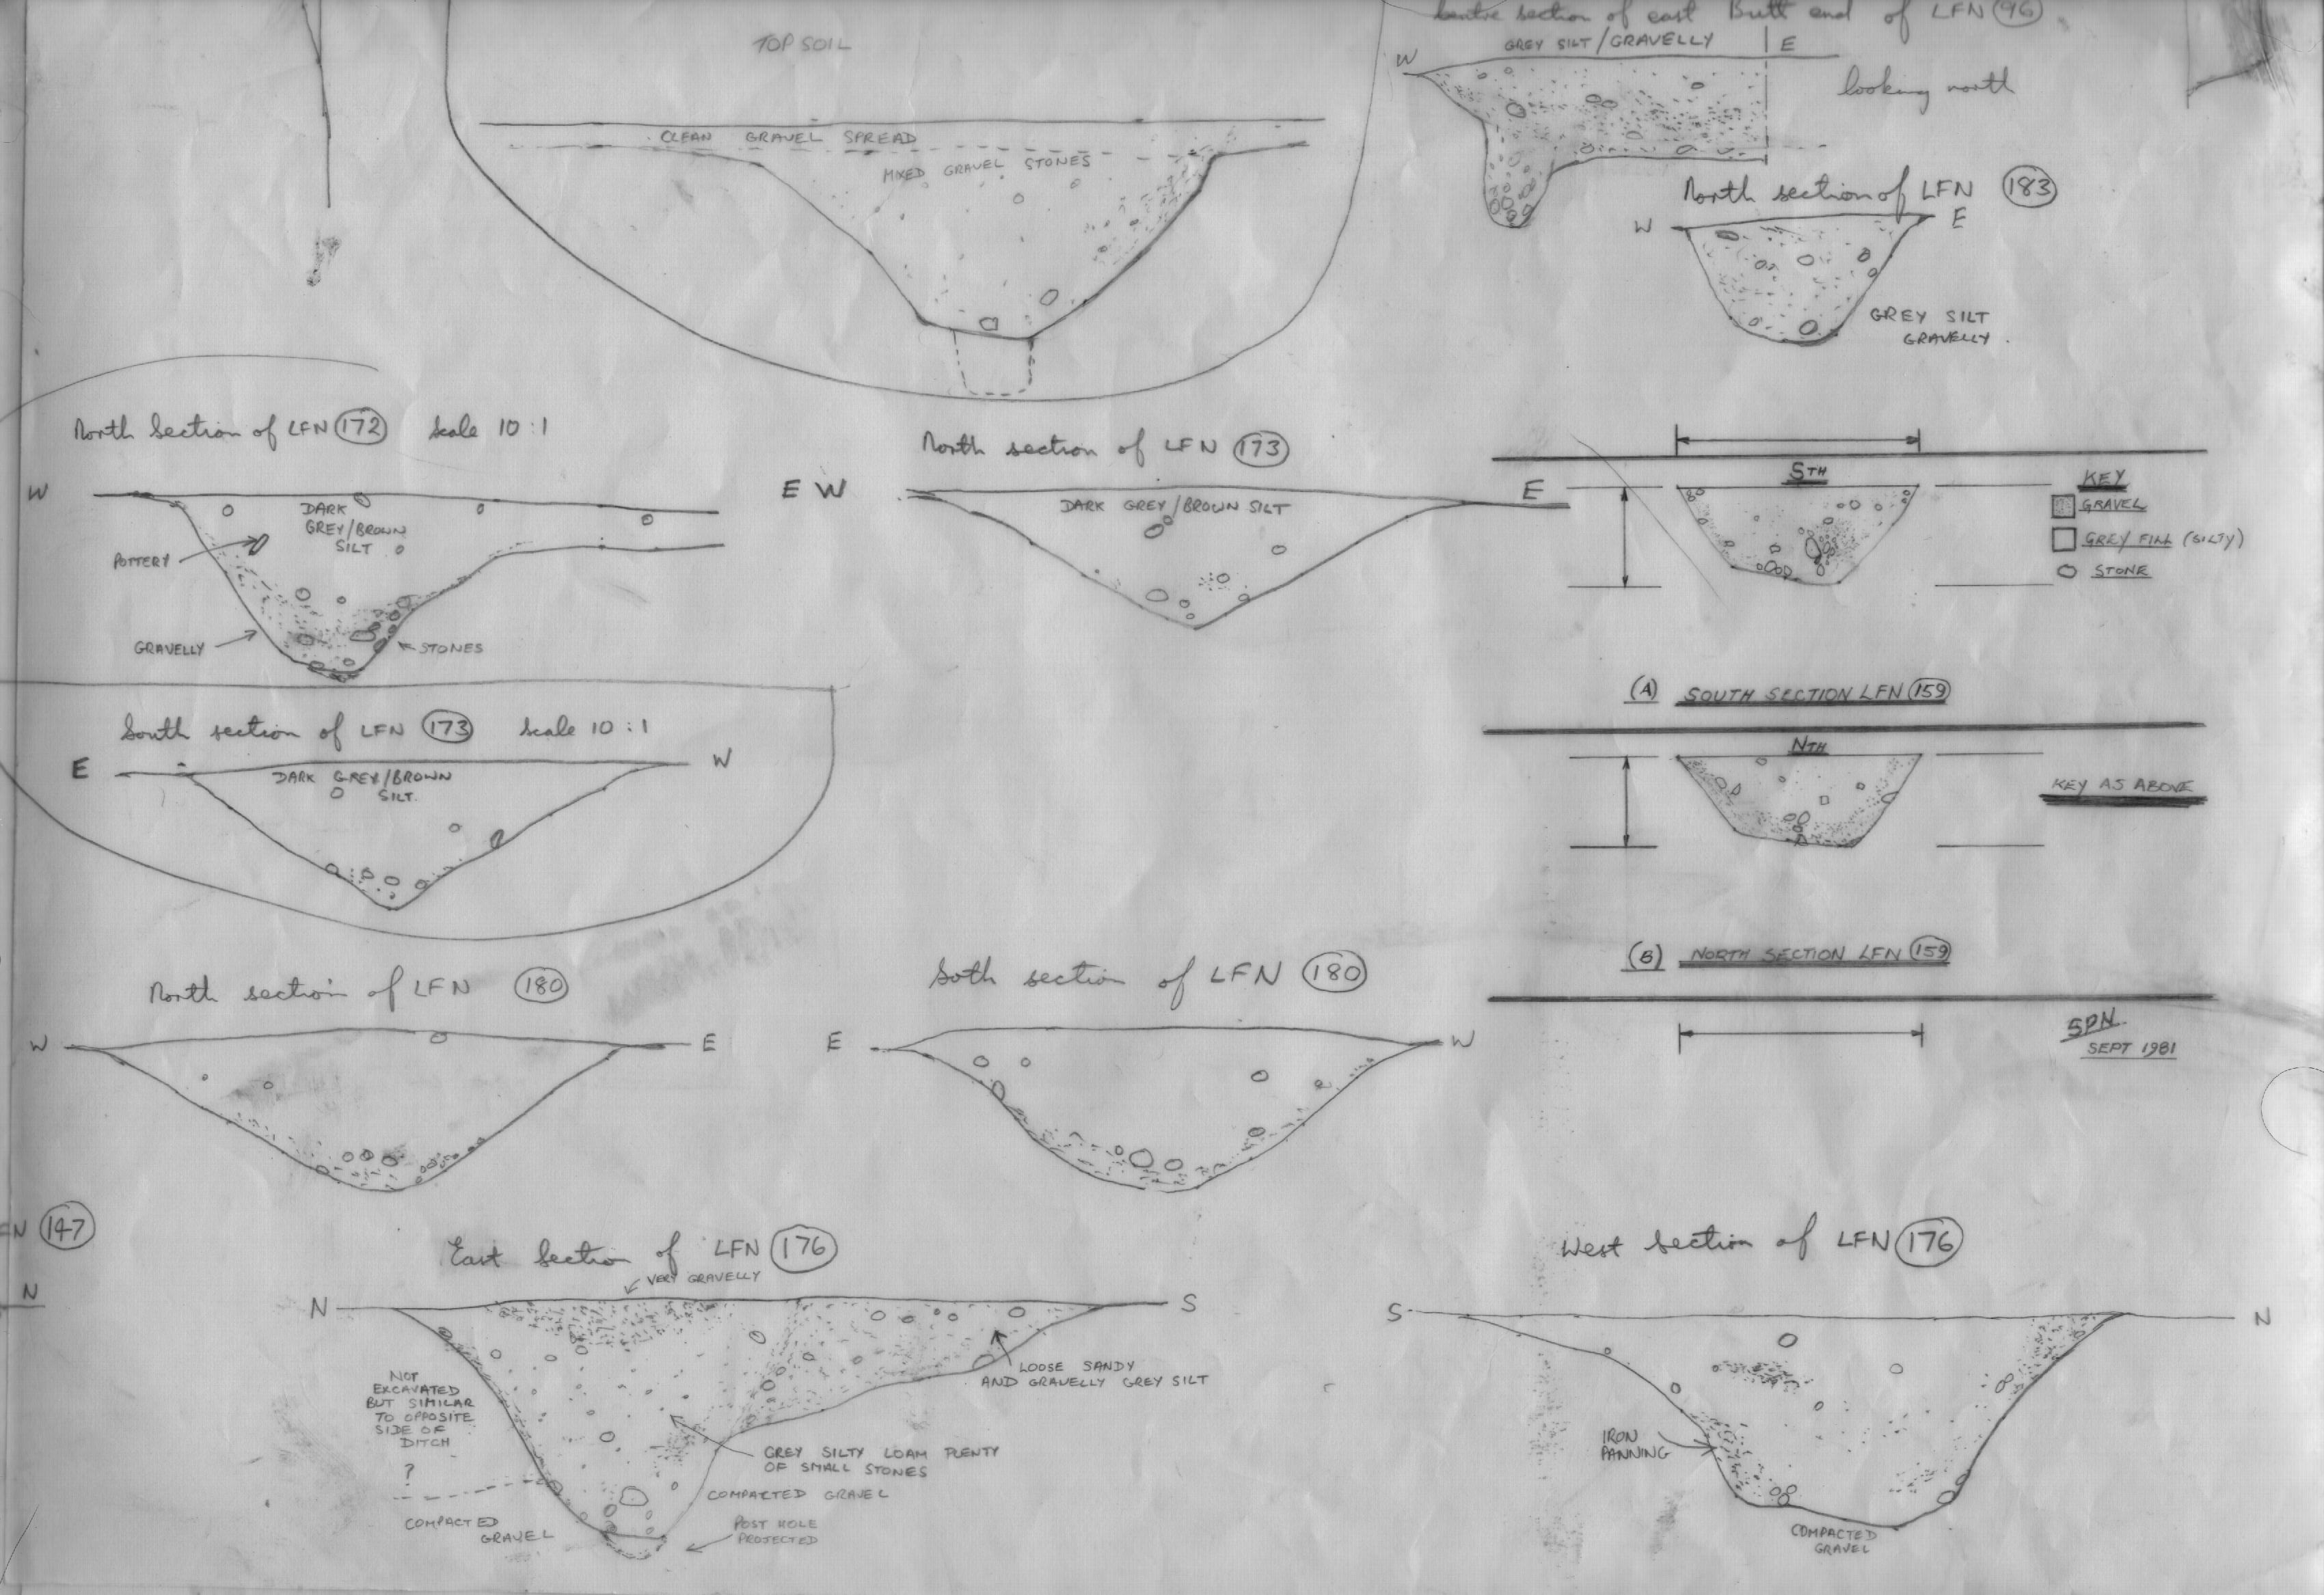 TOP SOIL
CLEAN GRAVEL SPREAD
MIXED GRAVEL STONES
Centre section of east Butt end of LFN 96
GREY SILT/GRAVELLY
W
E
looking north
North section of LFN 183
W
E
GREY SILT
GRAVELLY.
North Section of LFN 172 Scale 10:1
W
E
DARK
GREY/BROWN
SILT
POTTERY
GRAVELLY
STONES
North section of LFN 173
W
E
DARK GREY/BROWN SILT
STH
KEY
GRAVEL
GREY FILL (SILTY)
STONE
(A) SOUTH SECTION LFN 159
NTH
KEY AS ABOVE
(B) NORTH SECTION LFN 159
SPN
SEPT 1981
South section of LFN 173 Scale 10:1
E
W
DARK GREY/BROWN
SILT.
North section of LFN 180
W
E
Soth section of LFN 180
E
W
FN 147
N
East Section of LFN 176
VERY GRAVELLY
N
S
LOOSE SANDY
AND GRAVELLY GREY SILT
NOT
EXCAVATED
BUT SIMILAR
TO OPPOSITE
SIDE OF
DITCH
?
GREY SILTY LOAM PLENTY
OF SMALL STONES
COMPACTED GRAVEL
COMPACTED
GRAVEL
POST HOLE
PROJECTED
West section of LFN 176
S
N
IRON
PANNING
COMPACTED
GRAVEL